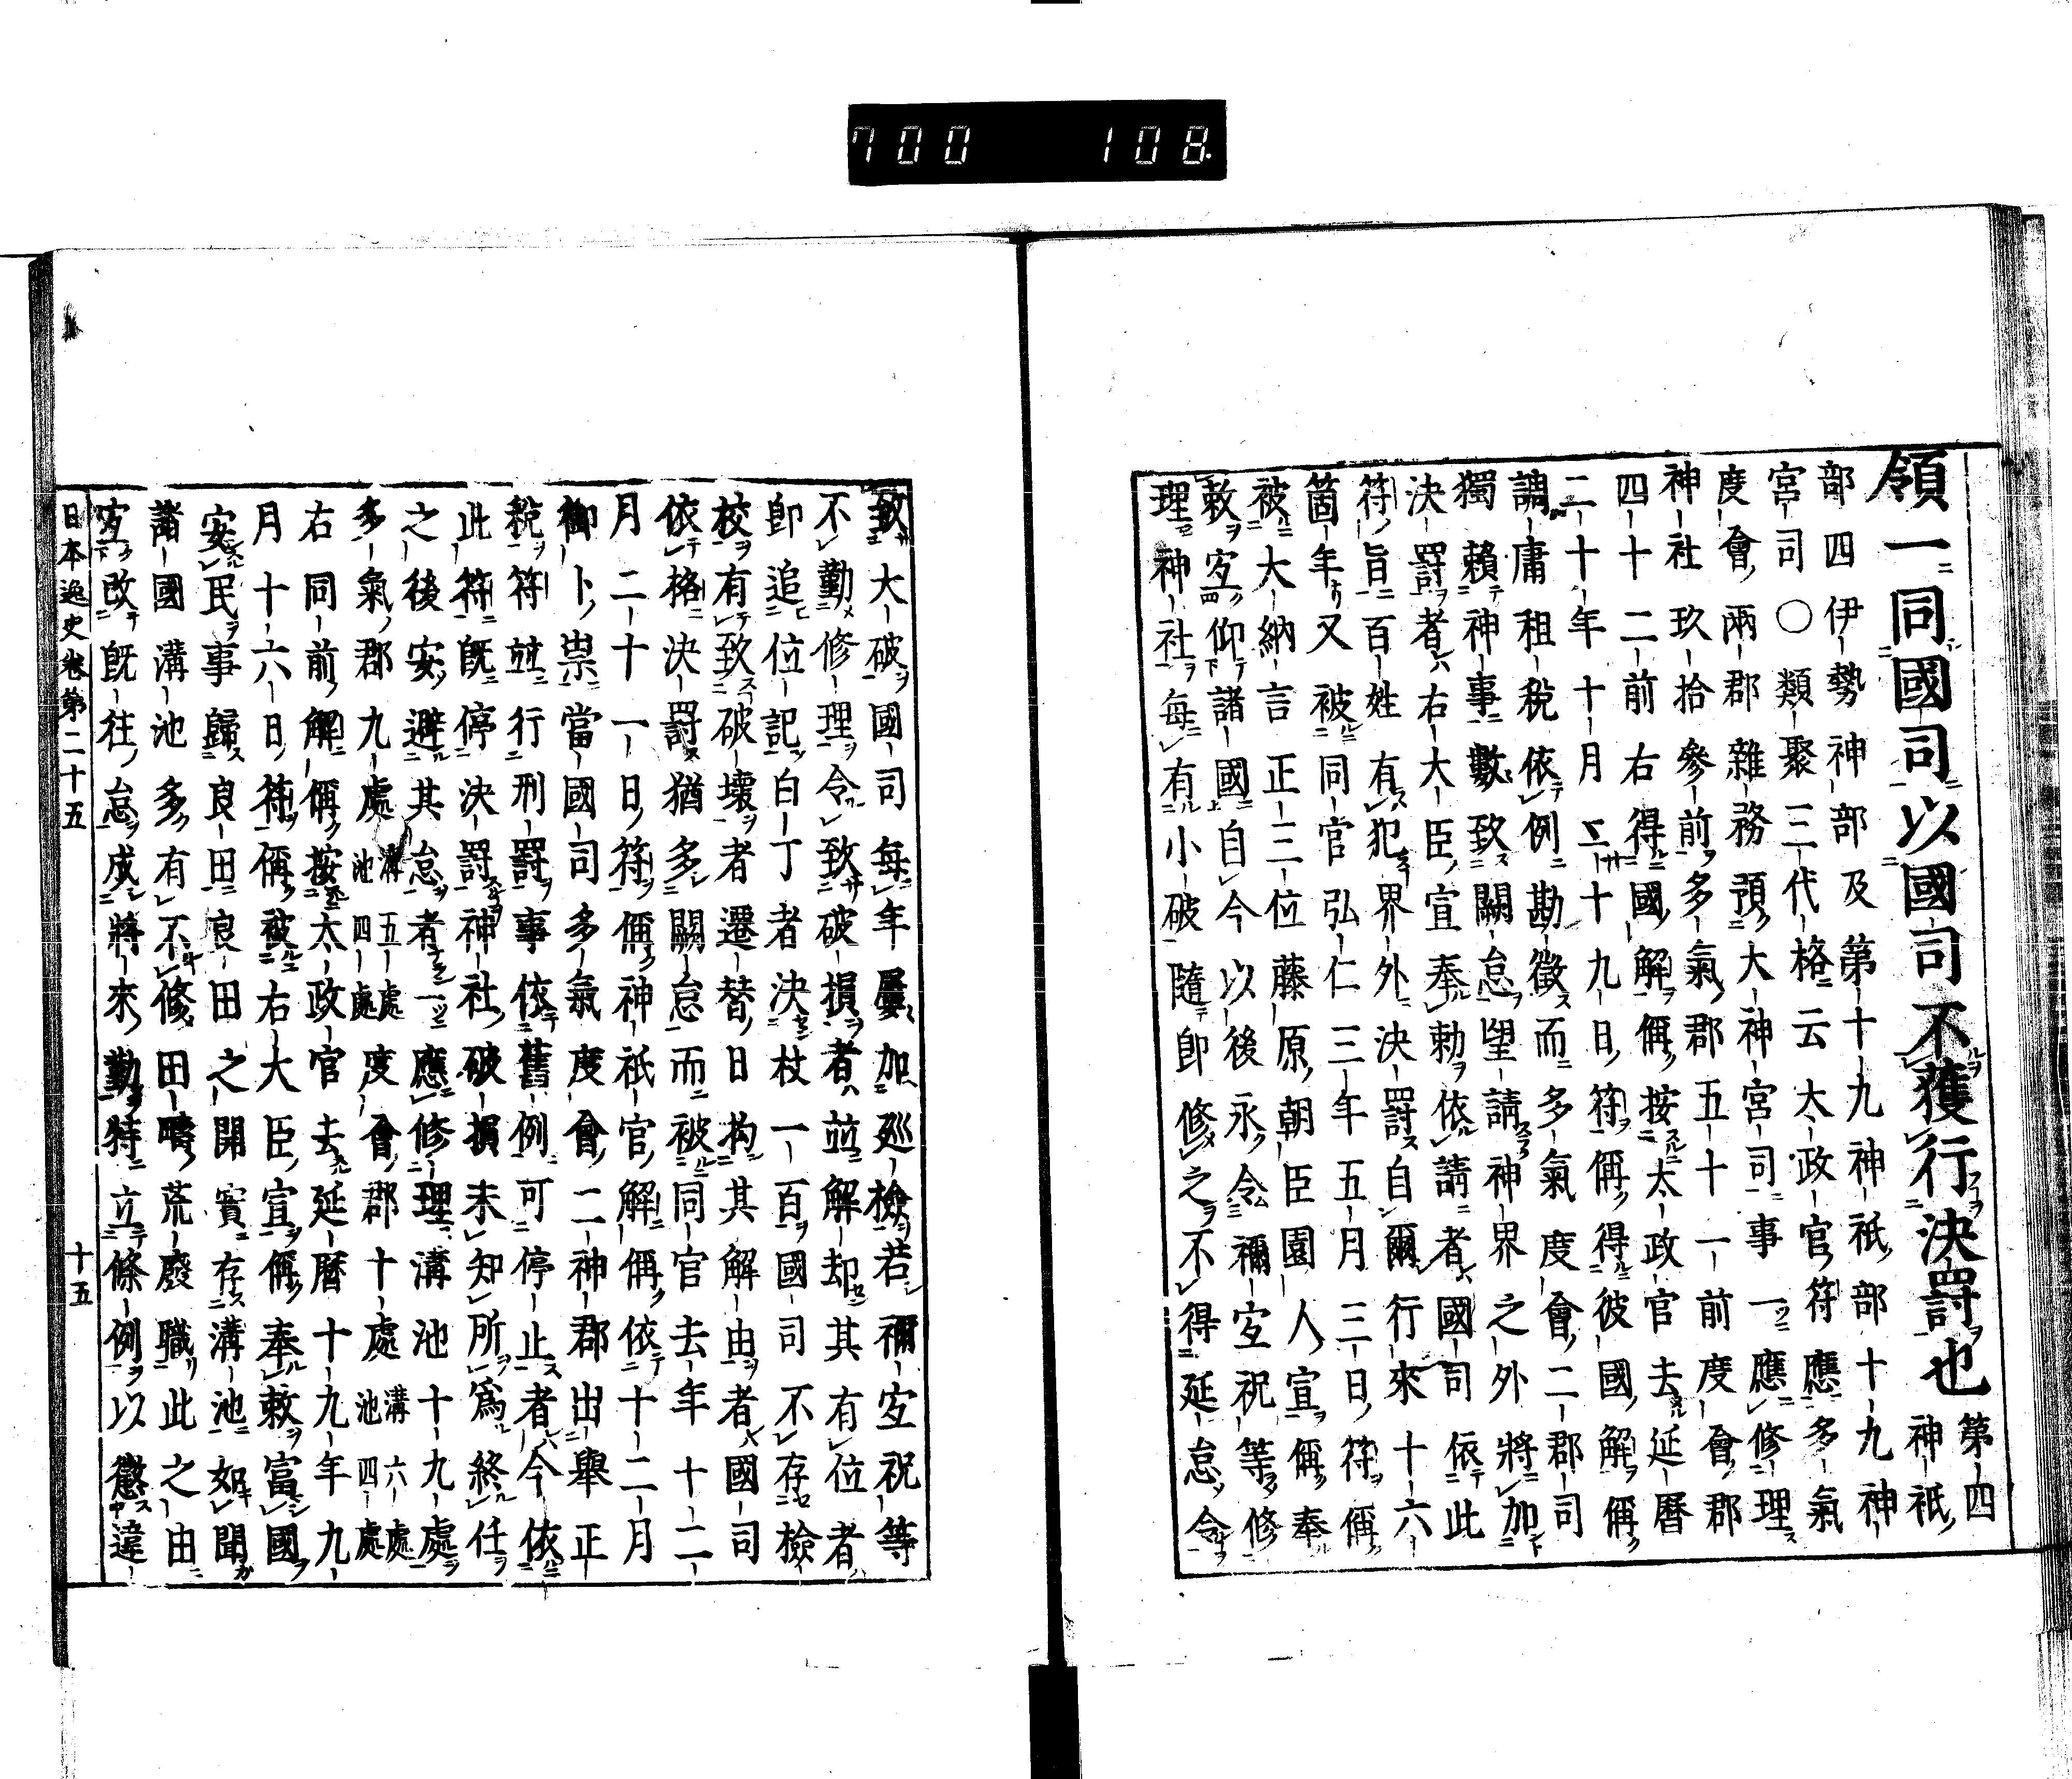 700 108.
領一同國司以國司不獲行決罸也 第四神祇
部四伊勢神部及第十九神祇部十九神
宮司〇類聚三代格云太政官符應多氣
度會兩郡雜務預大神宮司事一應修理
神社玖拾參前多氣郡五十一前度會郡
四十二前右得國解偁按太政官去延曆
二十年十月二十九日符偁得彼國解偁
調庸租税依例勘徵而多氣度會二郡司
獨頼神事數致闕怠望請神界之外將加
決罸者右大臣宣奉勅依請者國司依此
符旨百姓有犯界外決罸自爾行來十六
箇年又被同官弘仁三年五月三日符偁
被大納言正三位藤原朝臣園人宣偁奉
敕宜仰諸國自今以後永令禰宜祝等修
理神社每有小破隨卽修之不得延怠令
致大破國司每年屢加巡檢若禰宜祝等
不勤修理令致破損者並解却其有位者
卽追位記白丁者決杖一百國司不存檢
校有致破壞者遷替日拘其解由者國司
依格決罸猶多闕怠而被同官去年十二
月二十一日符偁神祇官解偁依十二月
御卜祟當國司多氣度會二神郡出舉正
税符並行刑罸事依舊例可停止者今依
此符旣停決罸神社破損未知所爲終任
之後安避其怠者一應修理溝池十九處
多氣郡九處 溝五處 池四處 度會郡十處 溝六處 池四處
右同前解偁按太政官去延曆十九年九
月十六日符偁被右大臣宣偁奉敕富國
安民事歸良田良田之開實存溝池如聞
諸國溝池多有不修田疇荒廢職此之由
宜改旣往怠成將來勤特立條例以懲違
日本逸史卷第二十五 十五